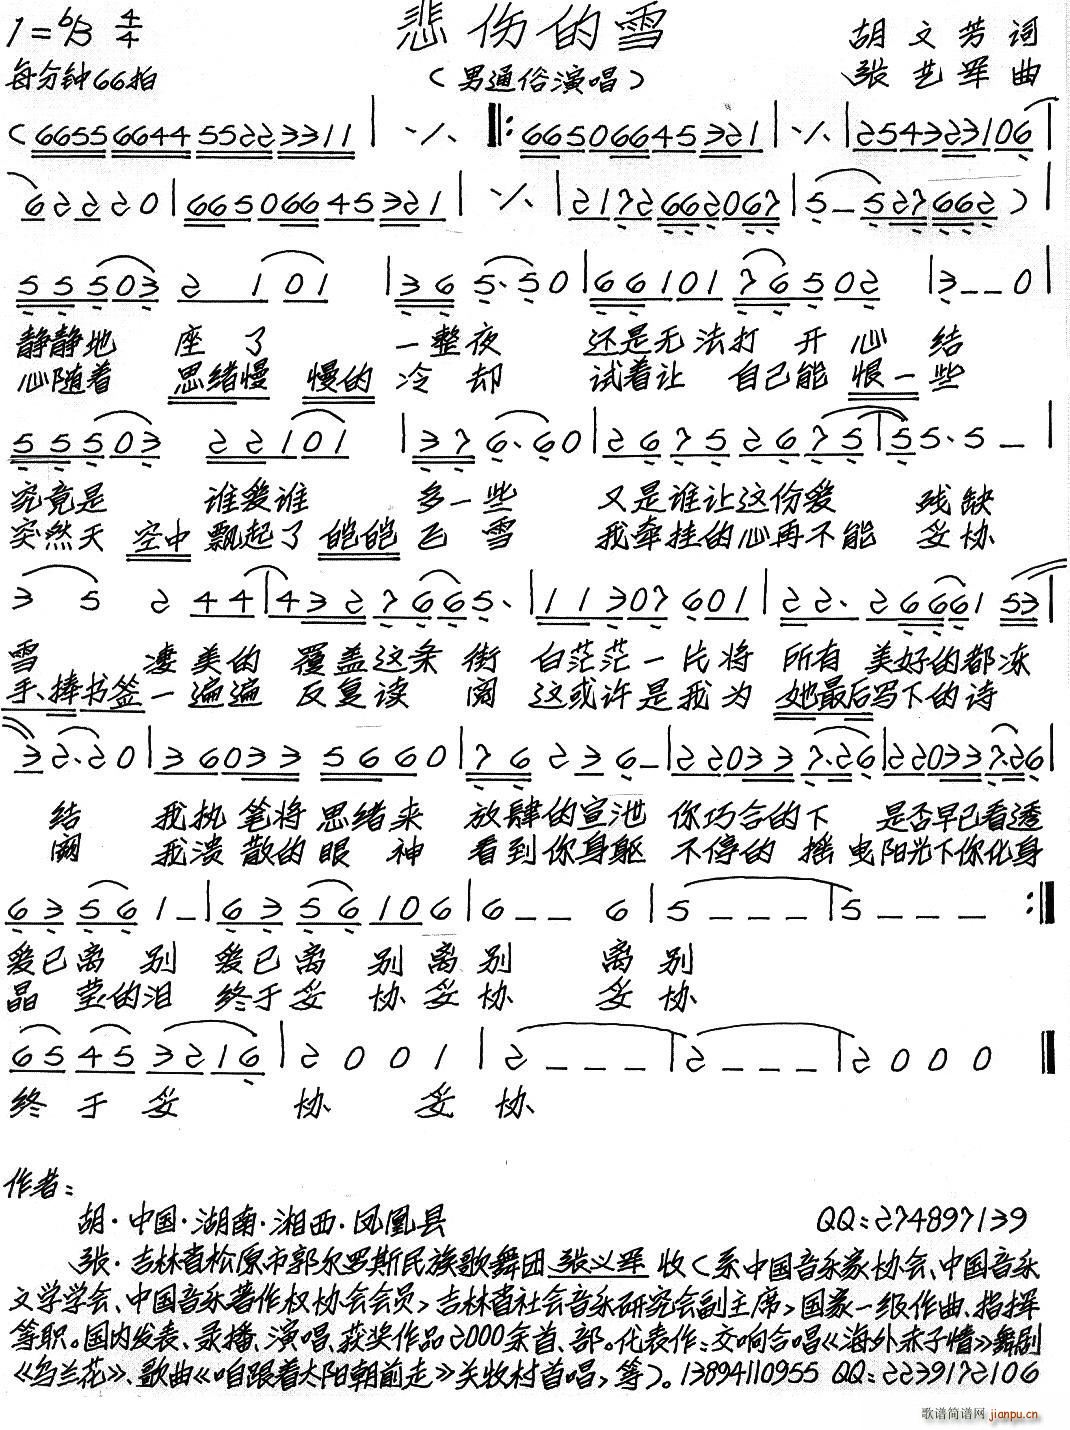 悲伤的雪
1=ᵇB 4/4
胡文芳 词
每分钟66拍
(男通俗演唱)
张艺军 曲
(6655 6644 5522 3311 | ٪ ‖: 6650 6645 321 | ٪ | 2543 23106 |
6 2 2 2 0 | 6650 6645 321 | ٪ | 2172 662067 | 5 – 527662) |
5 5 503 2 1 01 | 3 6 5·50 | 66 101 76 502 | 3 – – 0 |
静静地 座了 一整夜 还是无法打开心结
心随着 思绪慢慢的冷却 试着让 自己能恨一些
5 5 503 22101 | 37 6·60 | 26 75 26 75 | 55·5 – |
究竟是 谁爱谁 多一些 又是谁让这份爱 残缺
突然天空中飘起了皑皑飞雪 我牵挂的心再不能妥协
3 5 2 44 | 432 7665· | 11307 601 | 22·26661 53 |
雪 凄美的 覆盖这条街 白茫茫一片将 所有美好的都冻
手捧书签一遍遍 反复读阅 这或许是我为 她最后写下的诗
3 2·20 | 36033 5660 | 76 236 – | 22033 7·26 | 22033 7·26 |
结 我执笔将思绪来 放肆的宣泄 你巧合的下 是否早已看透
阙 我涣散的眼神 看到你身躯 不停的摇曳阳光下你化身
63 56 1 – | 63 56 106 | 6 – – 6 | 5 – – – | 5 – – – :‖
爱已离别 爱已离别离别 离别
晶莹的泪 终于妥协妥协 妥协
65 45 3216 | 2 0 0 1 | 2 – – – | 2 – – – | 2 0 0 0 ‖
终于妥 协 妥协
作者:
胡·中国·湖南·湘西·凤凰县 QQ:274897139
张·吉林省松原市郭尔罗斯民族歌舞团 张义军 收(系中国音乐家协会、中国音乐
文学学会、中国音乐著作权协会会员,吉林省社会音乐研究会副主席,国家一级作曲、指挥
等职。国内发表、录播、演唱、获奖作品2000余首、部。代表作:交响合唱《海外赤子情》舞剧
《乌兰花》、歌曲《咱跟着太阳朝前走》关牧村首唱,等)。13894110955 QQ:2239172106
歌谱简谱网 jianpu.cn